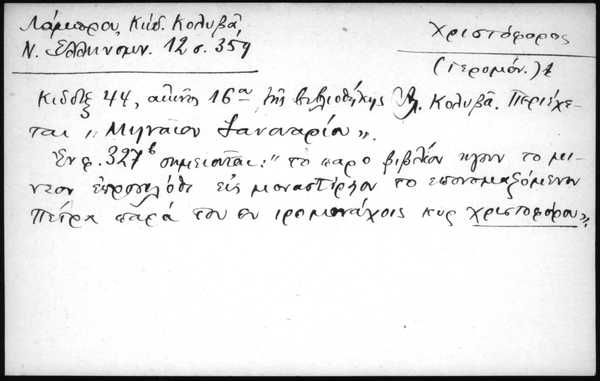 Λάμπρου, Κώδ. Κολυβᾶ
Ν. Ἑλληνομν. 12 σ. 359
Χριστόφορος
(Ἱερομόν.)
Κῶδιξ 44, αἰῶνος 16ου τῆς βιβλιοθήκης Ἀλ. Κολυβᾶ. Περιέχε-
ται „Μηναῖον Ἰανουαρίου".
Ἐν φ. 327β σημειοῦται: "το παρο βιβλίον ηγουν το μι-
νεον εἰς μοναστίρηον το επονομαζόμενον
πέτρα παρὰ του εν ιρομονάχοις κυρ χριστοφόρου",